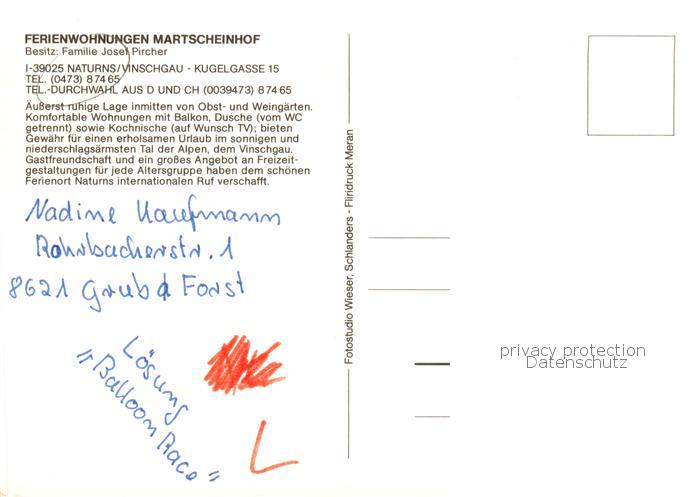 FERIENWOHNUNGEN MARTSCHEINHOF
Besitz: Familie Josef Pircher
I-39025 NATURNS/VINSCHGAU - KUGELGASSE 15
TEL. (0473) 87465
TEL.-DURCHWAHL AUS D UND CH (0039473) 87465
Äußerst ruhige Lage inmitten von Obst- und Weingärten.
Komfortable Wohnungen mit Balkon, Dusche (vom WC
getrennt) sowie Kochnische (auf Wunsch TV); bieten
Gewähr für einen erholsamen Urlaub im sonnigen und
niederschlagsärmsten Tal der Alpen, dem Vinschgau.
Gastfreundschaft und ein großes Angebot an Freizeit-
gestaltungen für jede Altersgruppe haben dem schönen
Ferienort Naturns internationalen Ruf verschafft.
Nadine Kaufmann
Rohrbacherstr. 1
8621 Grub a Forst
Lösung
"Balloon Race"
L
Fotostudio Wieser, Schlanders - Fliridruck Meran
privacy protection
Datenschutz